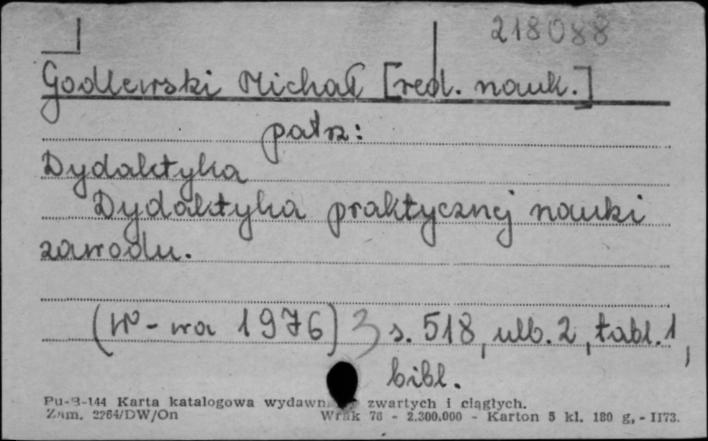 218088
Godlewski Michał [red. nauk.]
patrz:
Dydaktyka
Dydaktyka praktycznej nauki
zawodu.
(W-wa 1976) 3 s. 518, ulb. 2, tabl. 1,
bibl.
Pu-B-144 Karta katalogowa wydawn zwartych i ciągłych.
Zam. 2264/DW/On Wrak 76 - 2.300.000 - Karton 5 kl. 180 g. - II73.